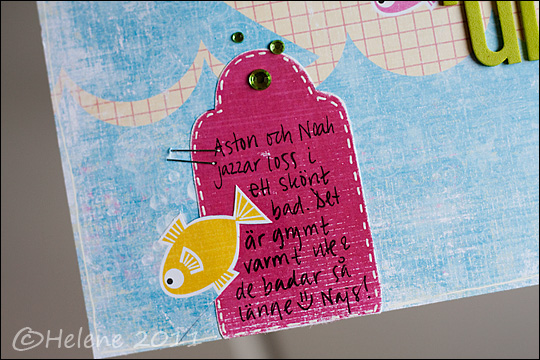 Aston och Noah
jazzar loss i
ett skönt
bad. Det
är grymt
varmt ute &
de badar så
länge :) Najs!
©Helene 2011